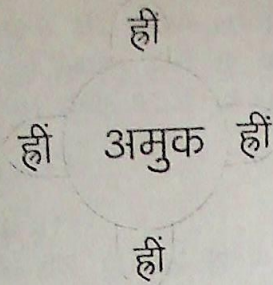 ह्रीं
ह्रीं अमुक ह्रीं
ह्रीं